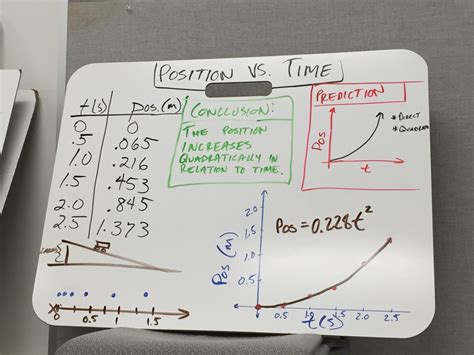 POSITION VS. TIME
t(s) pos.(m)
0 0
.5 .065
1.0 .216
1.5 .453
2.0 .845
2.5 1.373
CONCLUSION:
THE POSITION
INCREASES
QUADRATICALLY IN
RELATION TO TIME.
PREDICTION
POS
t
* DIRECT
* QUADRATIC
POS = 0.228t²
Pos (m)
2.0
1.5
1.0
0.5
0 0.5 1.0 1.5 2.0 2.5
t(s)
0 0.5 1 1.5